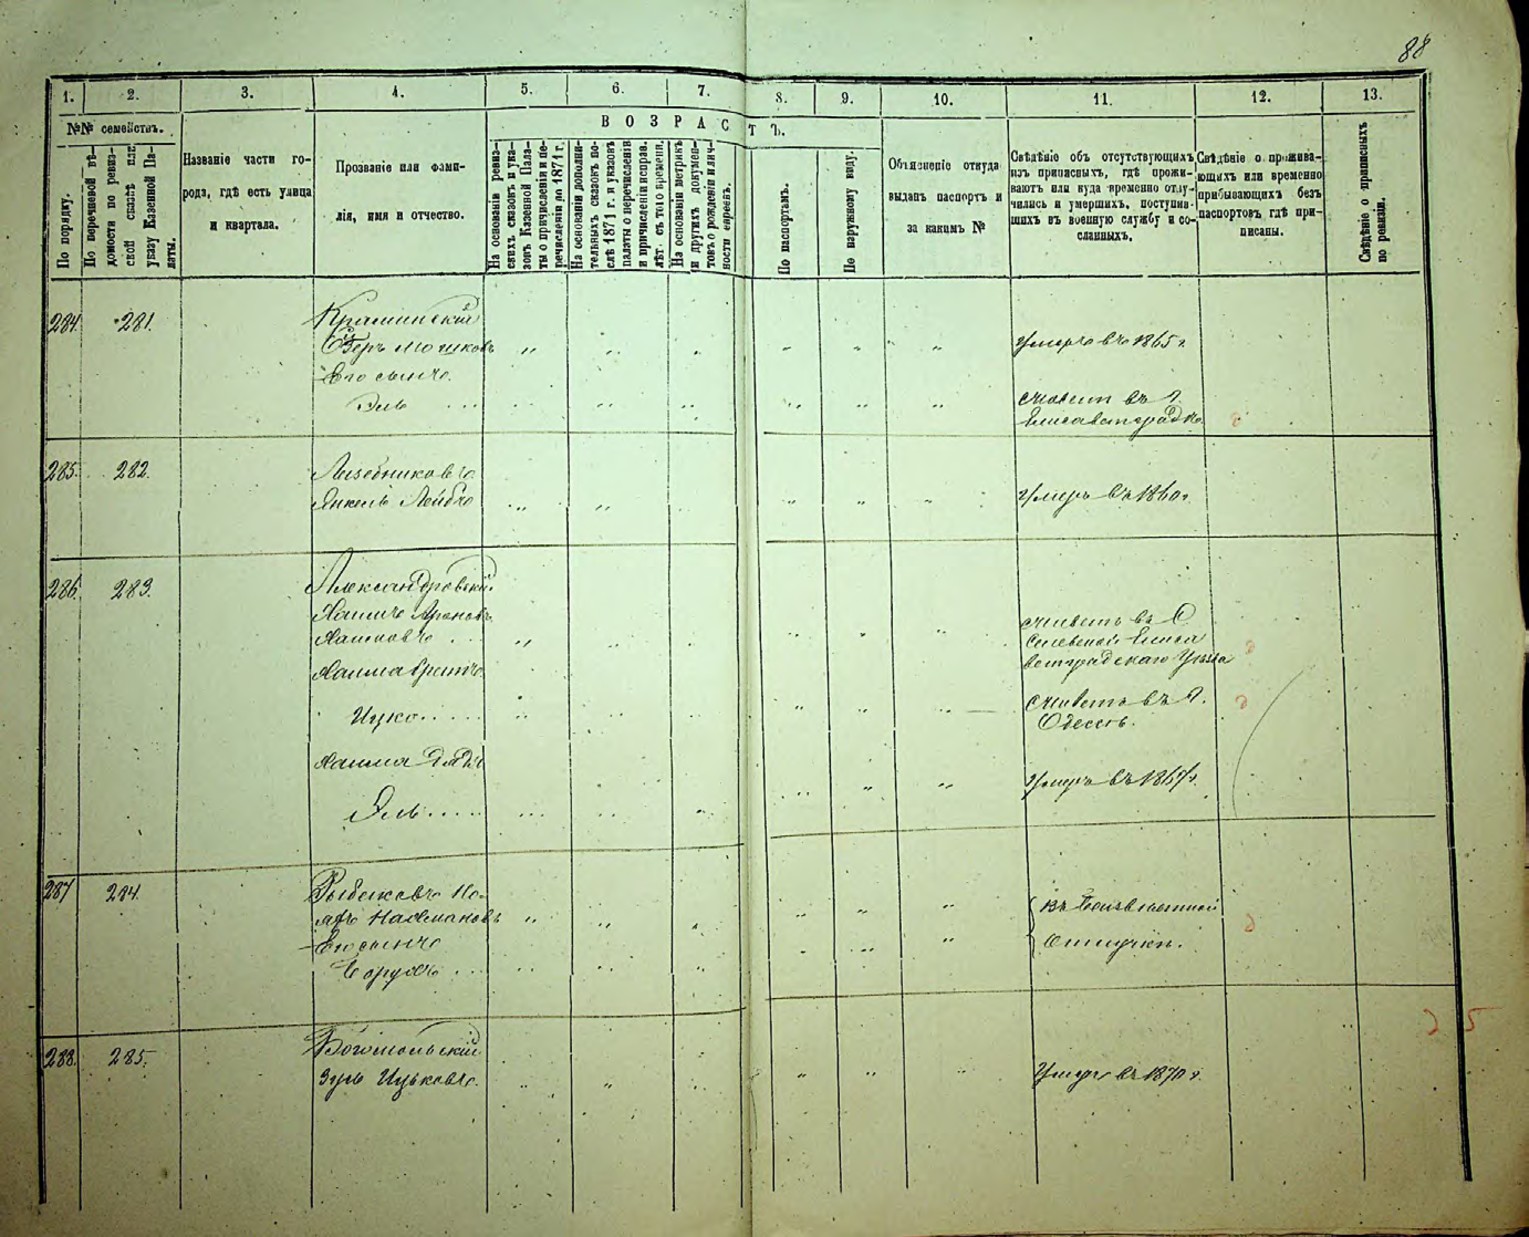 88
1. 2. 3. 4. 5. 6. 7. 8. 9. 10. 11. 12. 13.
№№ семействъ.
ВОЗРАСТЪ.
По порядку.
По перечневой вѣ-
домости по ревиз-
ской сказкѣ или
указу Казенной Па-
латы.
Названіе части го-
рода, гдѣ есть улица
и квартала.
Прозваніе или фами-
лія, имя и отчество.
На основаніи ревиз-
скихъ сказокъ и ука-
зовъ Казенной Пала-
ты о причисленіи и пе-
речисленіи до 1871 г.
На основаніи дополни-
тельныхъ сказокъ по-
слѣ 1871 г. и указовъ
палаты о перечисленіи
и причисленіи исправ.
лѣт. съ того времени.
На основаніи метрикъ
и другихъ докумен-
товъ о рожденіи и лич-
ности евреевъ.
По паспортамъ.
По наружному виду.
Объясненіе откуда
выданъ паспортъ и
за какимъ №
Свѣдѣніе объ отсутствующихъ
изъ приписныхъ, гдѣ прожи-
ваютъ или куда временно отлу-
чились и умершихъ, поступив-
шихъ въ военную службу и со-
сланныхъ.
Свѣдѣніе о прожива-
ющихъ или временно
прибывающихъ безъ
паспортовъ гдѣ при-
писаны.
Свѣдѣніе о приписныхъ
по ревизіи.
284. 281.
Мошковъ умеръ въ 1865 г.
Его сынъ
Эль живетъ въ г.
Елисаветградѣ
285. 282.
Янкель Лейбъ умеръ въ 1860 г.
286. 283. Александровскій
Хаимъ Ароновъ живетъ въ С.
Хаимовъ Елиса
ветградскаго Уѣзда
Хаима братъ
Ицко живетъ въ г.
Одессѣ.
Хаима дядя
Эль умеръ въ 1867 г.
287 284. въ безъизвѣстной
Нахмановъ
Его сынъ отлучкѣ.
Борухъ
288. 285. Богопольскій
Ицьковъ. умеръ въ 1870 г.
25